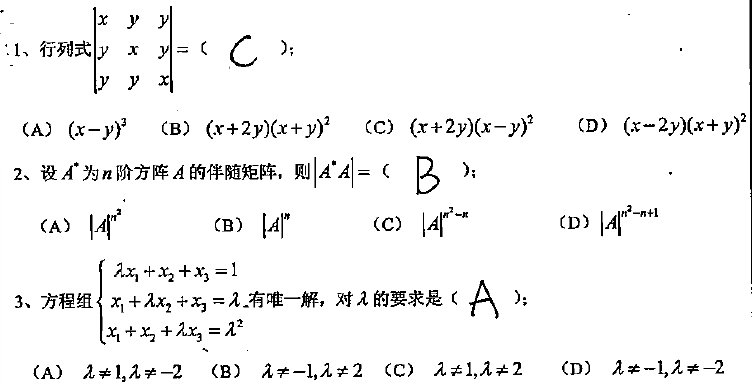 1、行列式|x y y
y x y
y y x| = ( C );
(A) (x-y)³ (B) (x+2y)(x+y)² (C) (x+2y)(x-y)² (D) (x-2y)(x+y)²
2、设 A* 为 n 阶方阵 A 的伴随矩阵，则|A*A| = ( B );
(A) |A|^{n²} (B) |A|^n (C) |A|^{n²-n} (D) |A|^{n²-n+1}
λx₁+x₂+x₃=1
3、方程组{x₁+λx₂+x₃=λ 有唯一解，对 λ 的要求是 ( A );
x₁+x₂+λx₃=λ²
(A) λ≠1,λ≠-2 (B) λ≠-1,λ≠2 (C) λ≠1,λ≠2 (D) λ≠-1,λ≠-2